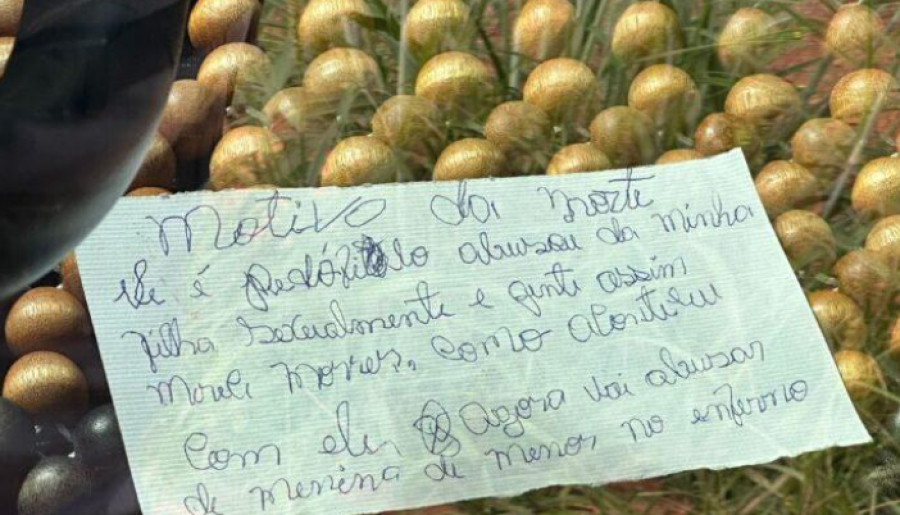 Motivo da morte
ele é pedófilo abusou da minha
filha sexualmente e gente assim
mere morrer, como aconteceu
com ele, Agora vai abusar
de menina de menor no inferno